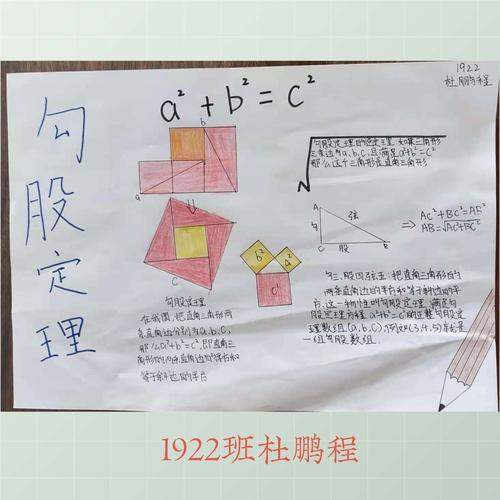 1922
杜鹏程
a²+b²=c²
勾股定理
b
a
c
b²
a²
c²
勾股定理的逆定理:如果三角形
三条边为a,b,c,且满足a²+b²=c²
那么这个三角形是直角三角形
A
勾
弦
C
股
B
⇒ AC²+BC²=AB²
AB=√AC²+BC²
勾三,股四弦五:把直角三角形的
两条直角边的平方和等于斜边的平
方,这一特性叫勾股定理,满足勾
股定理方程a²+b²=c²的正整勾股定
理数组(a,b,c),例如(3,4,5)就是
一组勾股数组.
勾股定理
在我国,把直角三角形两
条直角边分别为a,b,c,
那么a²+b²=c²,即直角三
角形的两条直角边的平方和
等于斜边的平方
1922班杜鹏程